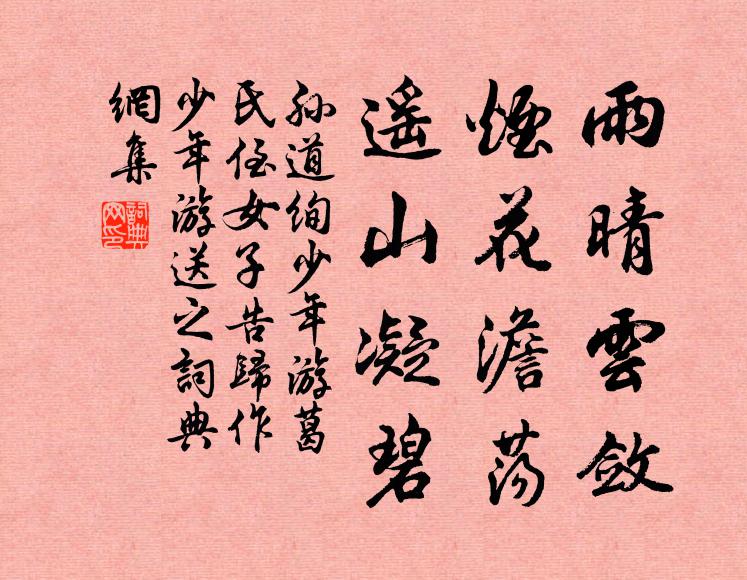 雨晴雲斂
煙花澹蕩
遥山凝碧
孙道绚少年游葛
氏侄女子告歸作
少年游送之詞典
網集
詞典網印